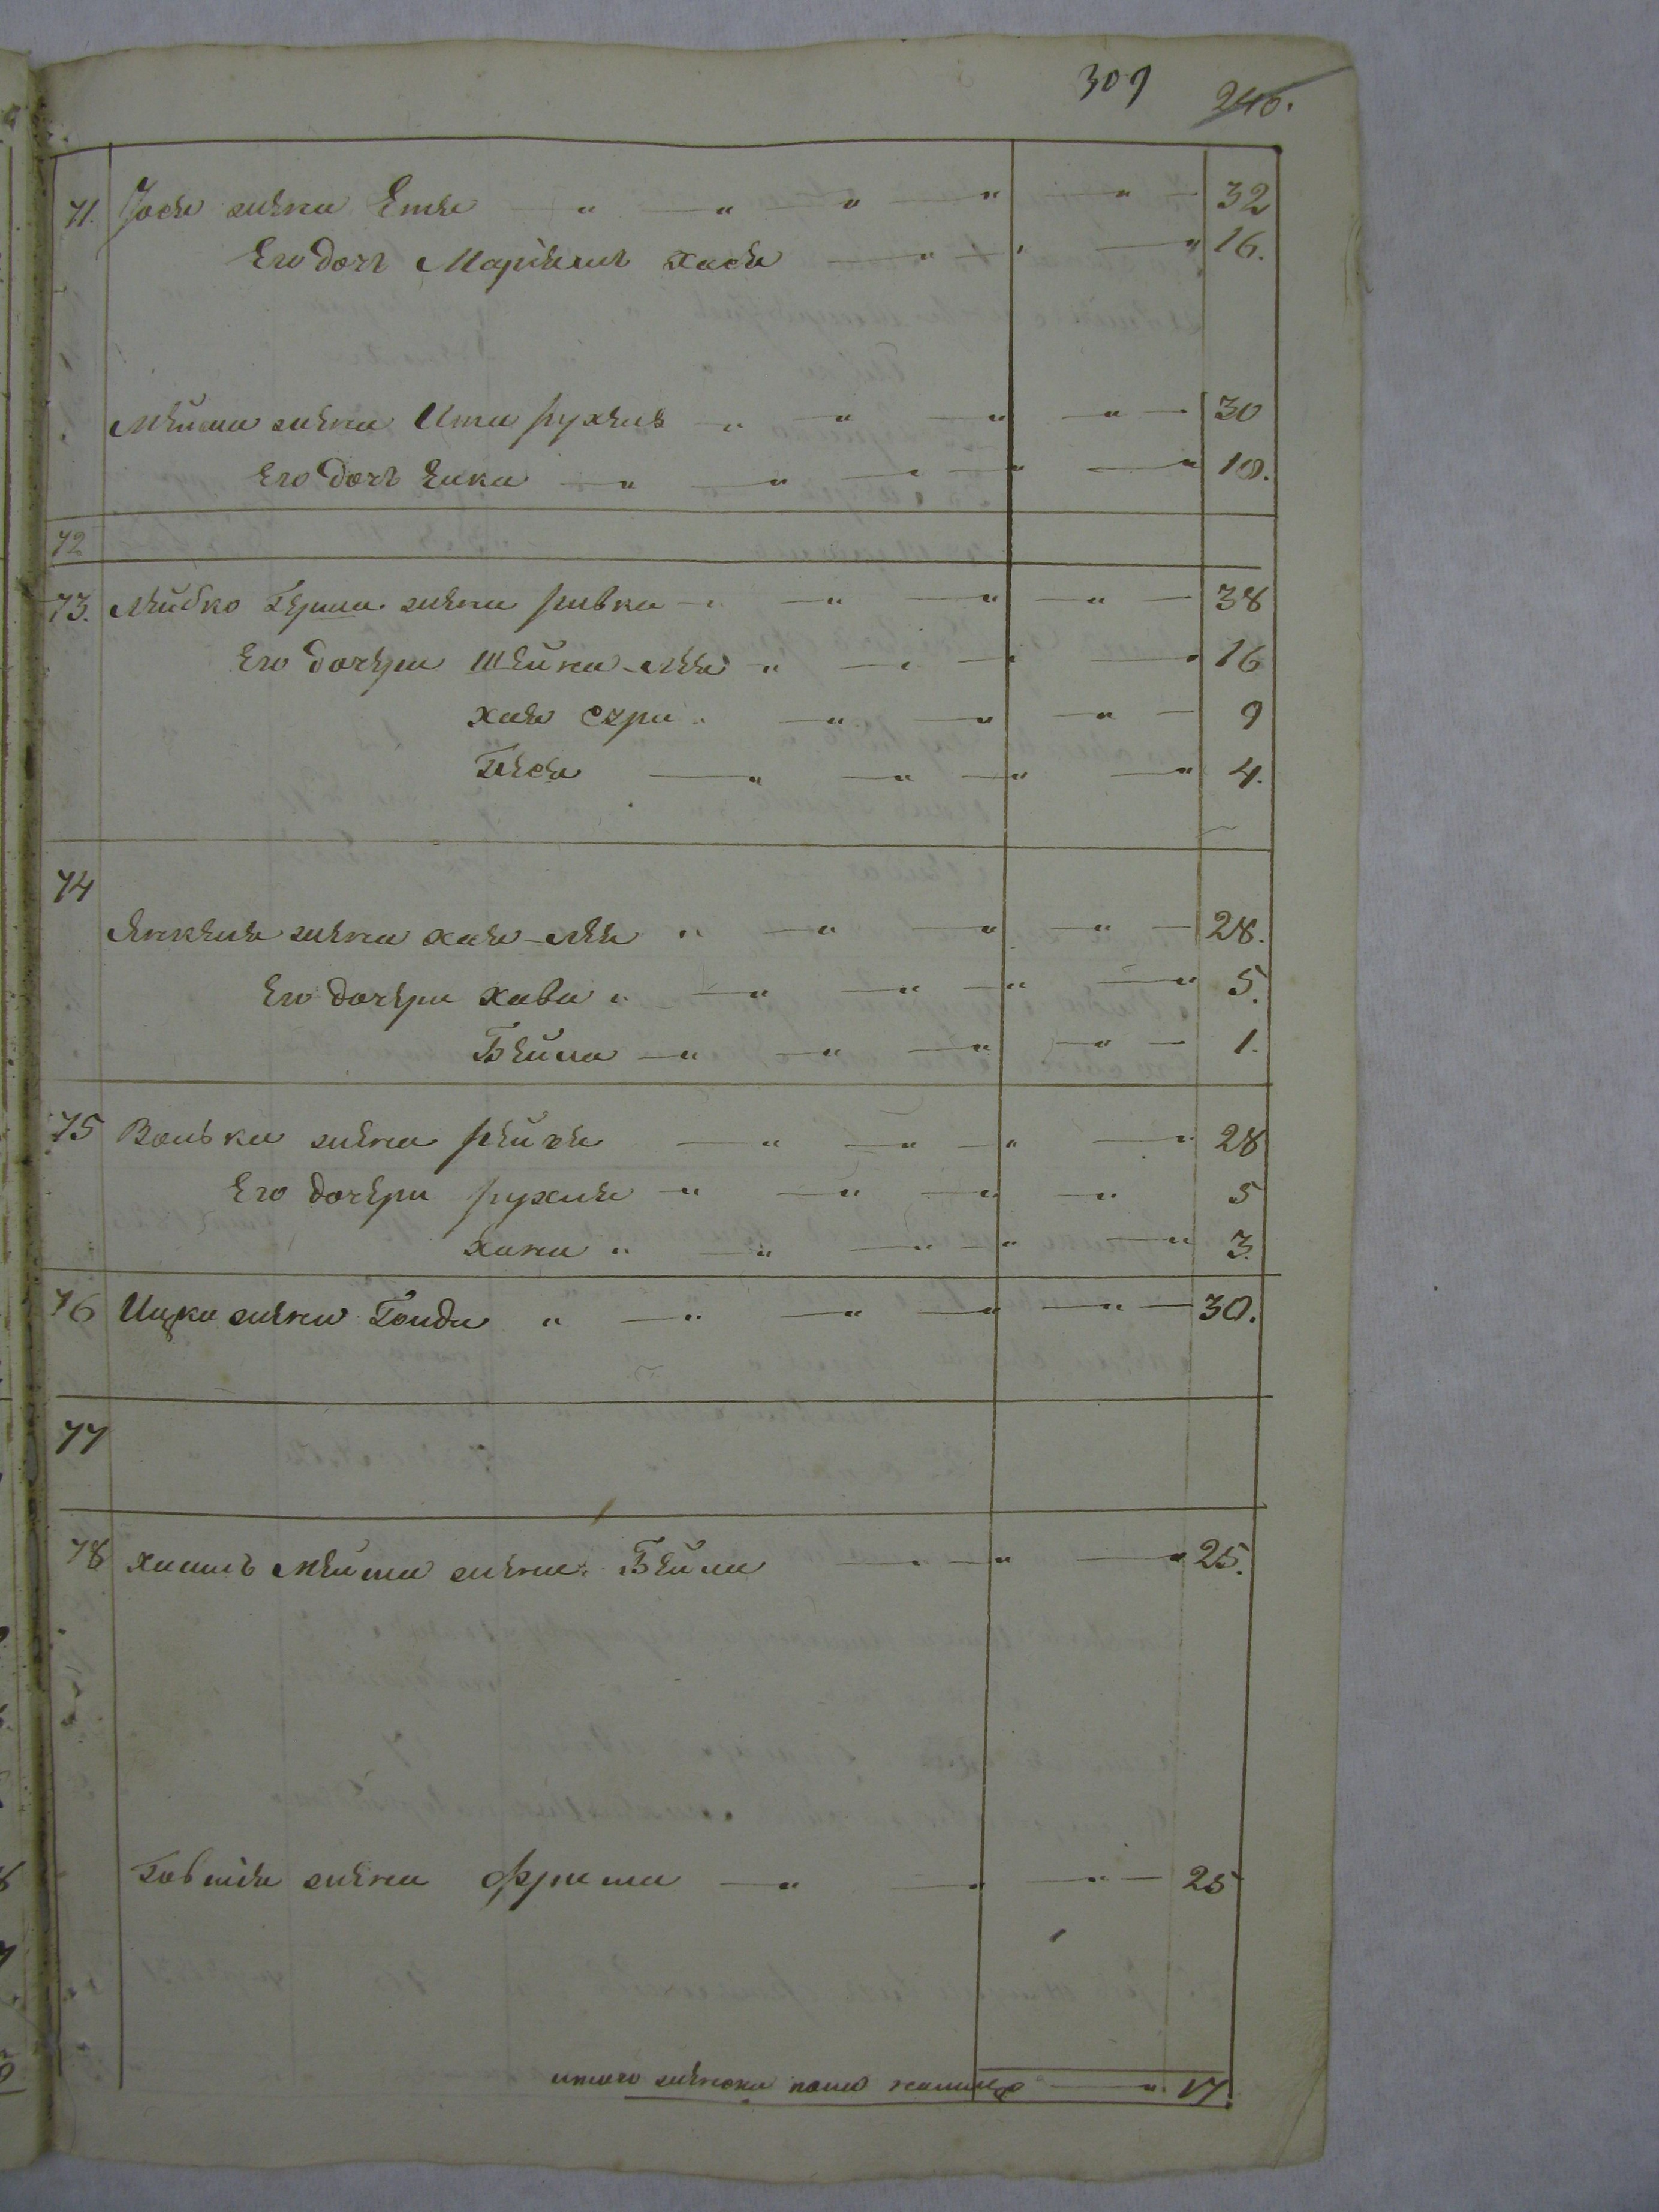 309 240.
71. Іося жена Етя 32
Его дочь Маріямъ хася 16.
Мейша жена Ита рухля 30
Его дочь Енка 10.
72
73. Лейбко Герша жена ривка 38
Его дочери Шейна-лея 16
хая сура 9
Песя 4.
74
Янкеля жена хая-лея 28.
Его дочери хава 5.
Бейла 1.
75 Волька жена рейзя 28
Его дочери рухля 5
хана 3.
76 Ицка жена Голда 30.
77
78 жена Бейла 25.
жена Фрума 25
итого женска пола налицо 17.